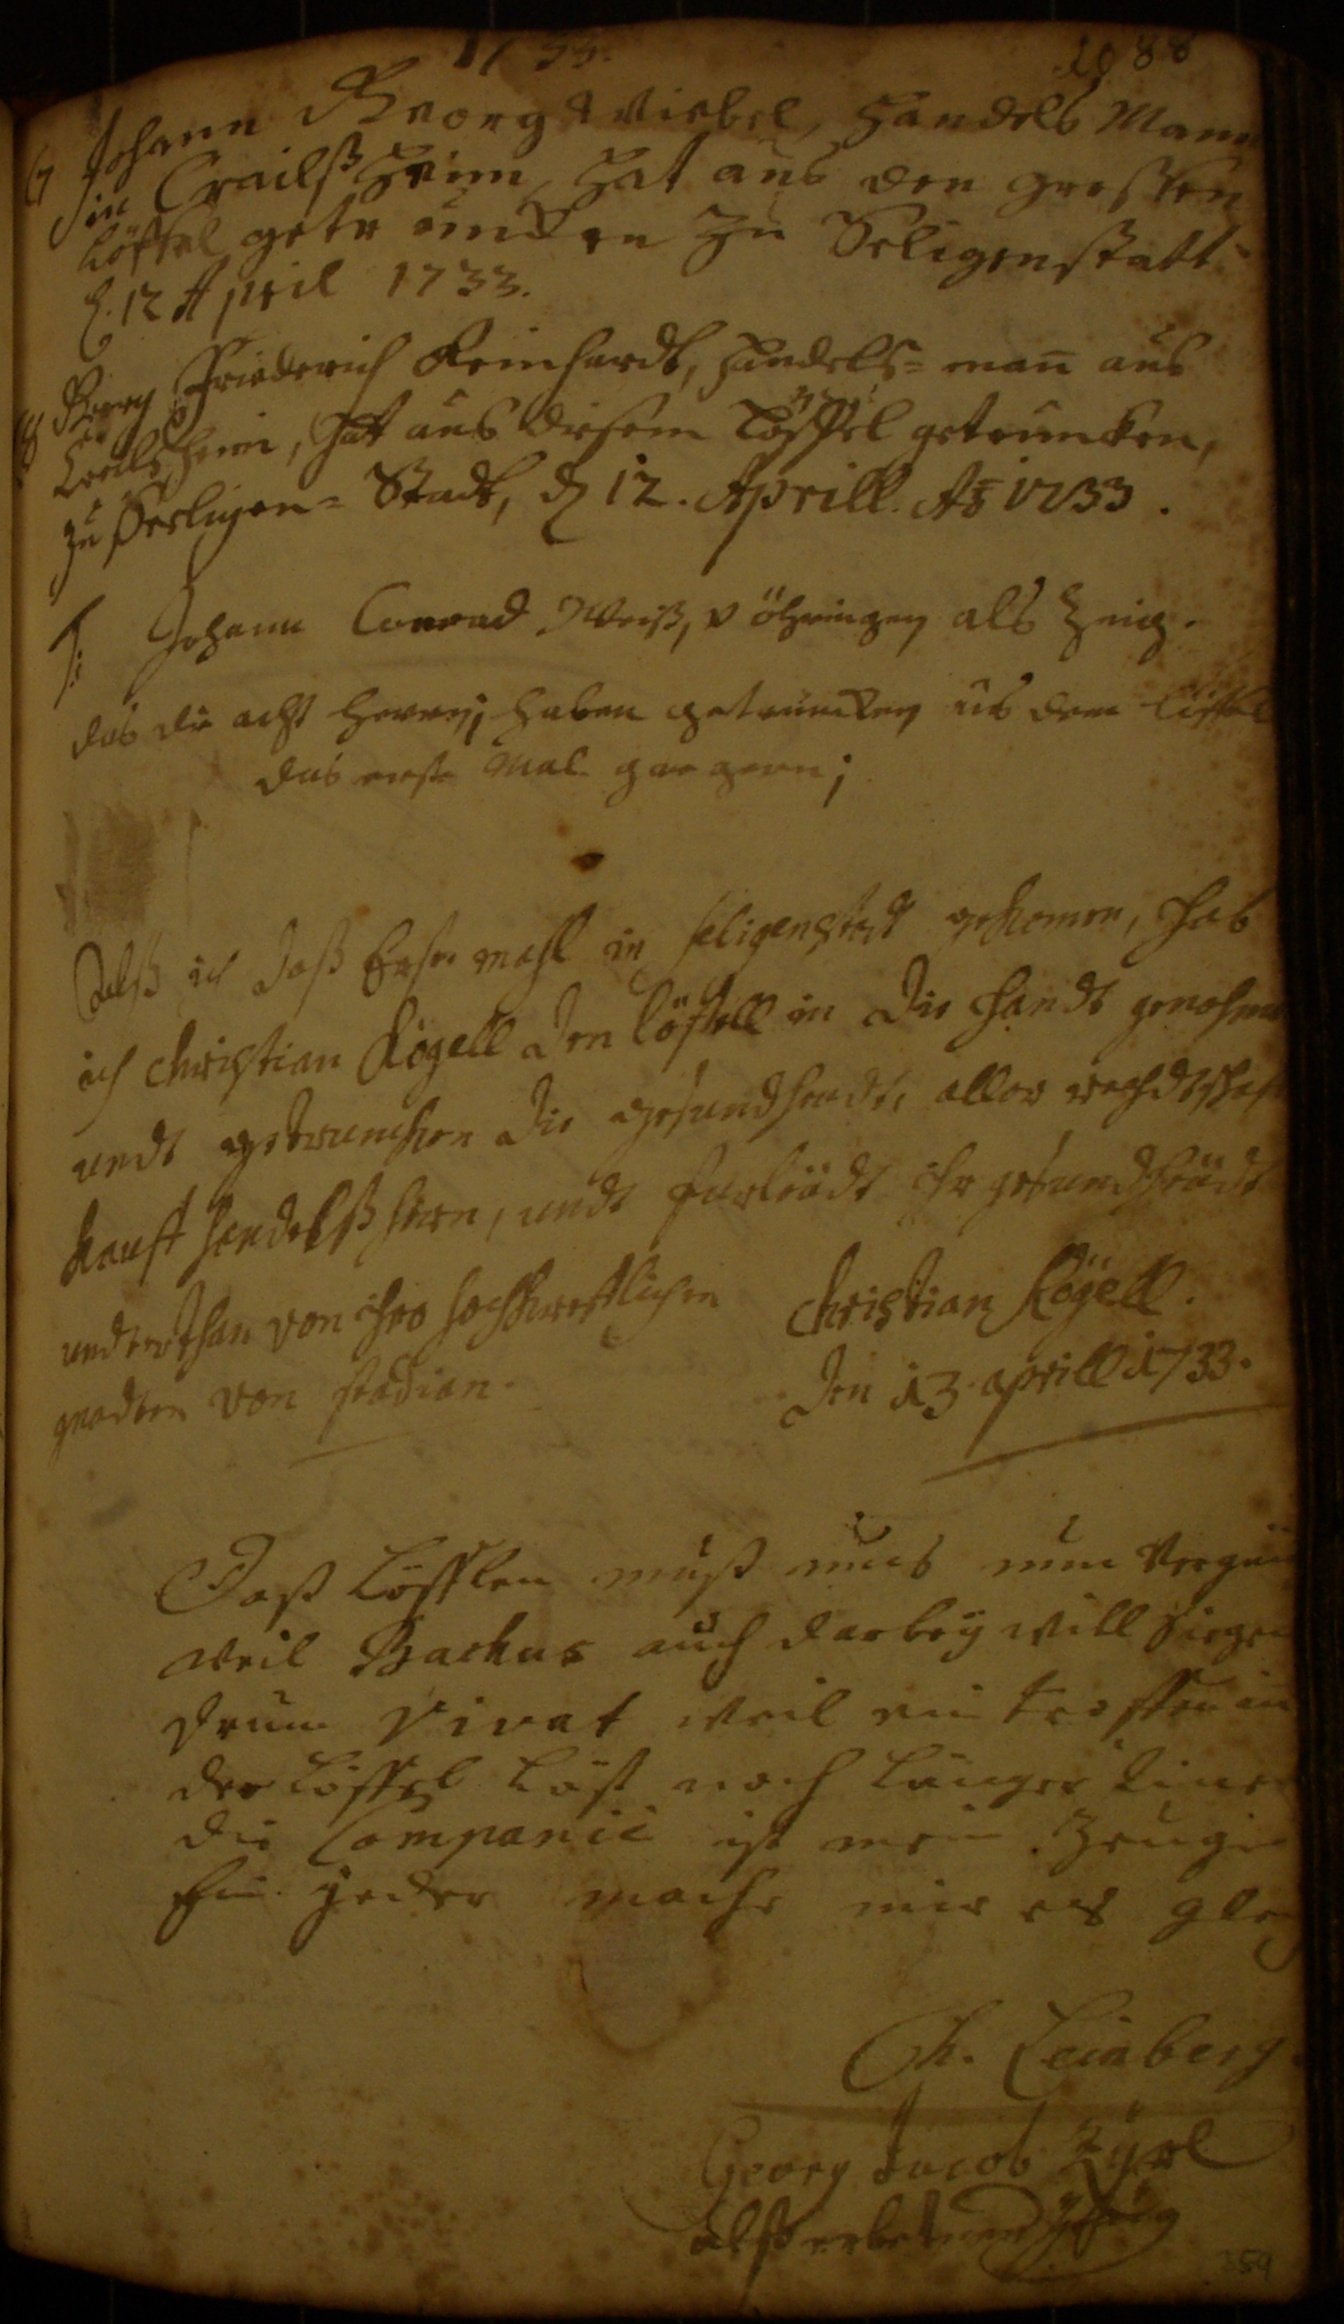 1733.
1088
67 Johann Georg Wiebel, Handels Mann
in Crailßheim, hat aus den großen
Löffel getruncken zu Seligenstatt
d. 12 April 1733.
68 Georg Friederich Reinhardt, Handels=man aus
Creilsheim, hat aus diesem Löffel getruncken,
zu Seeligen=Stadt, d 12. Aprill. Ao 1733.
Johann Conrad Weiß, v öhringen als Zeug.
das die acht herren; haben getruncken us dem löffel
das erste Mal gar gern;
Alß ich daß Erste mahl in seligenstadt gekomen, hab
ich Christian Kögell den löffell in die handt genohmen
undt getrunchen die gesundheudt, aller rechdtschaf
kauff handelßhern, undt ihr gesundheidt
underthan von ihro hochfürstlichen
gnaden von stadian.
Christian Kögell.
den 13. aprill 1733.
Daß Löfflen muß uns nun Vergnü
weil Bachus auch darbey will siegen
drum Vivat weil ein tropffen in
der Löffel läst noch länger
die Companie ist mein Zeuge
Ein jeder mache mir es gleich
Ch. Leinberg.
Georg Jacob
alß erbetener Zeug
359